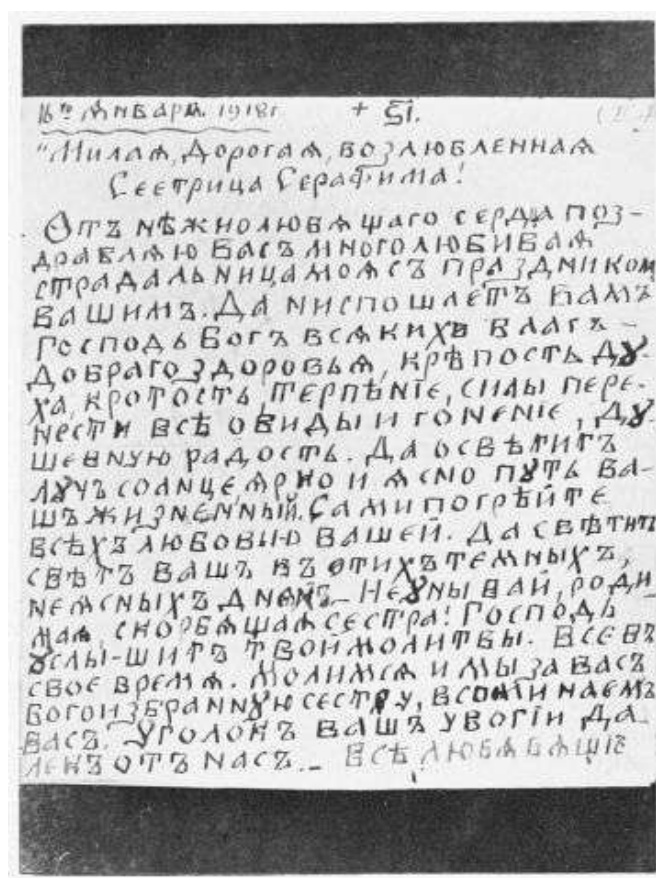 16го Ѧнваря 1918г. + S͞I.
"Милаѧ, Дорогаѧ, возлюбленнаѧ
Сестрица Серафима!
Отъ нѣжнолюбѧщаго сердца поз-
дравлѧю Васъ многолюбиваѧ
страдальница моѧ съ праздником
вашимъ. Да ниспошлетъ вамъ
Господь Богъ всѧкихъ благъ -
добраго здоровьѧ, крѣпость дꙋ-
ха, кротость, терпѣніе, силы пере-
нести всѣ обиды и гоненіе, дꙋ-
шевную радость. Да освѣтитъ
лꙋчъ солнце, ѧрко и ѧсно пꙋть ва-
шъ жизненный. Сами погрѣйте
всѣхъ любовию вашей. Да свѣтитъ
свѣтъ вашъ въ ѳтихъ темныхъ,
неѧсныхъ днеѧхъ - Неꙋнывай, роди-
маѧ, скорбѧщаѧ сестра! Господь
ꙋслы-шитъ твои молитвы. Все въ
свое времѧ. Молимсѧ и мы за васъ
Богоизбраннꙋю сестрꙋ, вспоминаемъ
васъ. Уголокъ вашъ убогіи да
лекъ отъ насъ. - Всѣ любѧвѧщіе